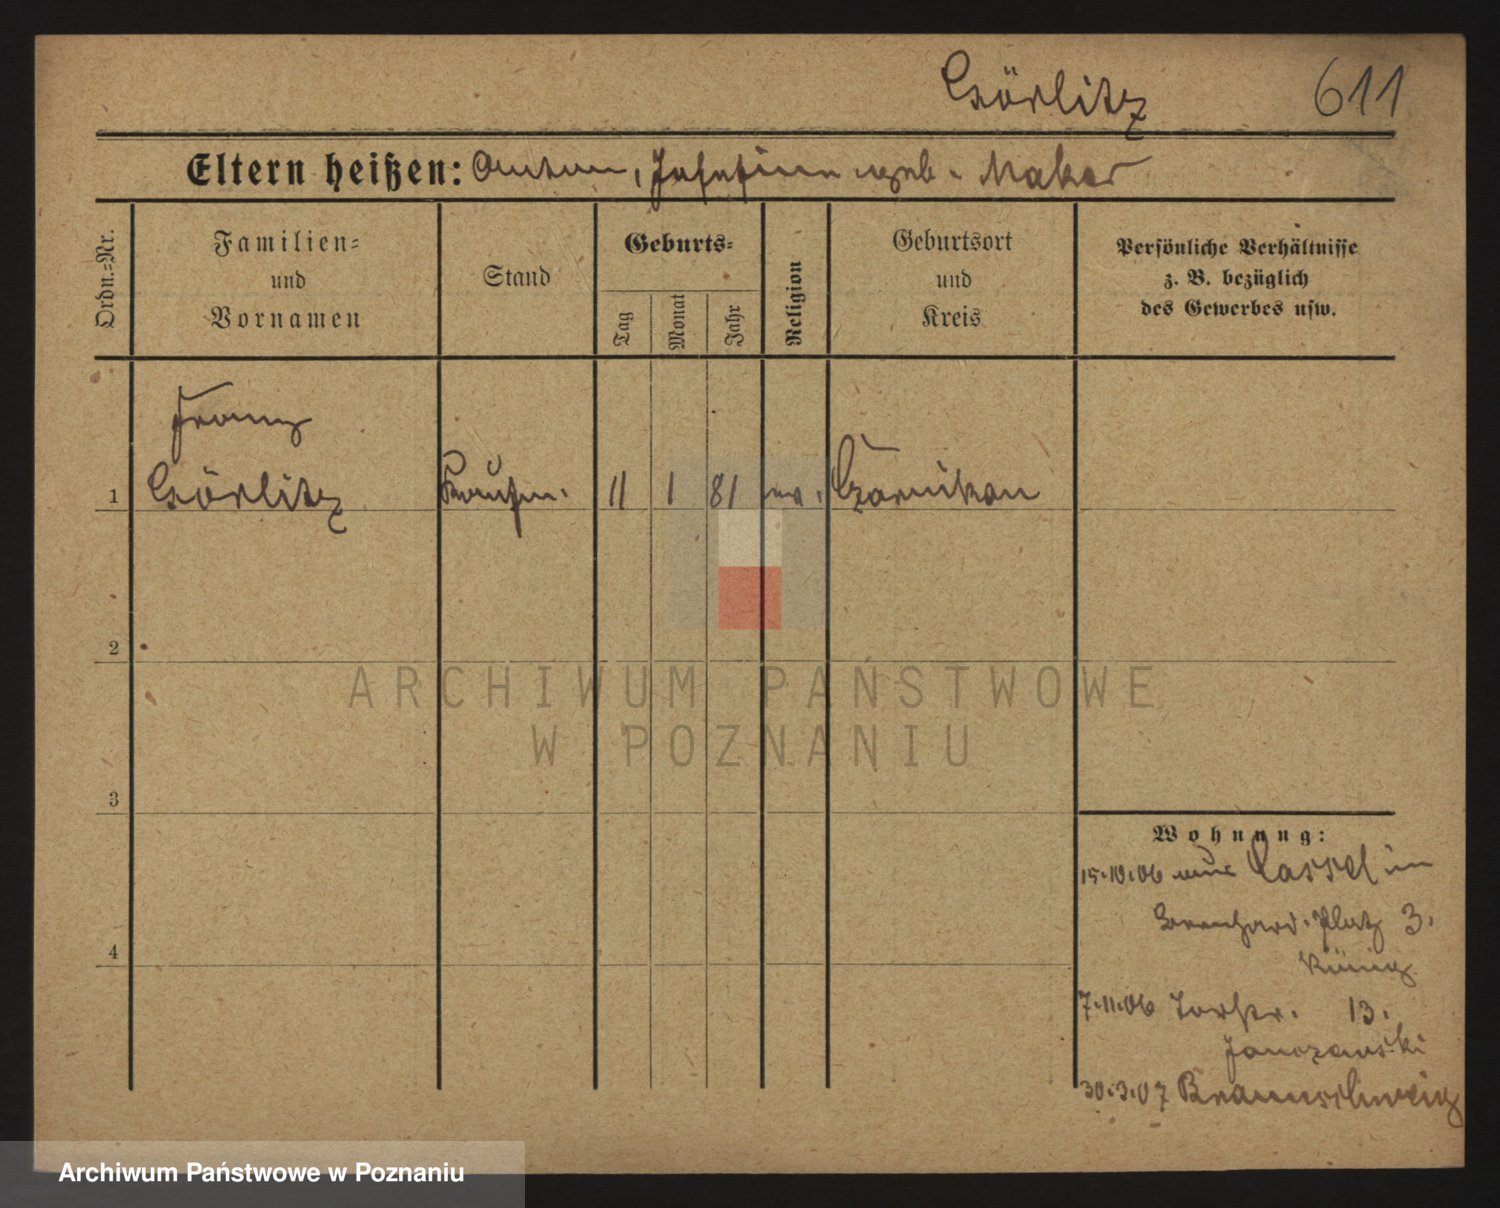 Görlitz 611
Eltern heißen: Anton, Josefine geb. Maker
Ordn.=Nr.
Familien=
und
Vornamen
Stand
Geburts=
Tag
Monat
Jahr
Religion
Geburtsort
und
Kreis
Persönliche Verhältnisse
z. B. bezüglich
des Gewerbes usw.
Franz
1 Görlitz Kaufm. 11 1 81 Czarnikau
2
3
4
Wohnung:
15.10.06 aus Cassel in
Platz 3.
König
7.11.06 Torstr. 13.
Janczewski
30.3.07 Braunschweig
ARCHIWUM PAŃSTWOWE
W POZNANIU
Archiwum Państwowe w Poznaniu